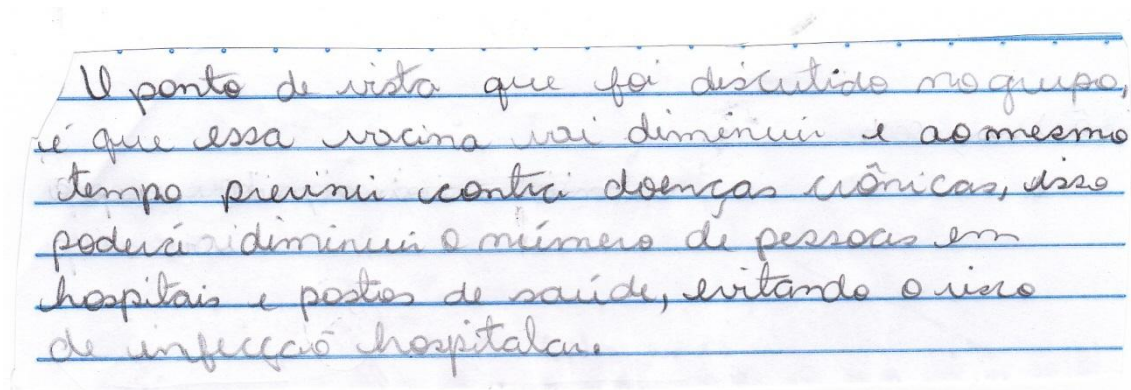 O ponto de vista que foi discutido no grupo,
é que essa vacina vai diminuir e ao mesmo
tempo previnir contra doenças crônicas, isso
poderá diminuir o número de pessoas em
hospitais e postos de saúde, evitando o risco
de infecção hospitalar.